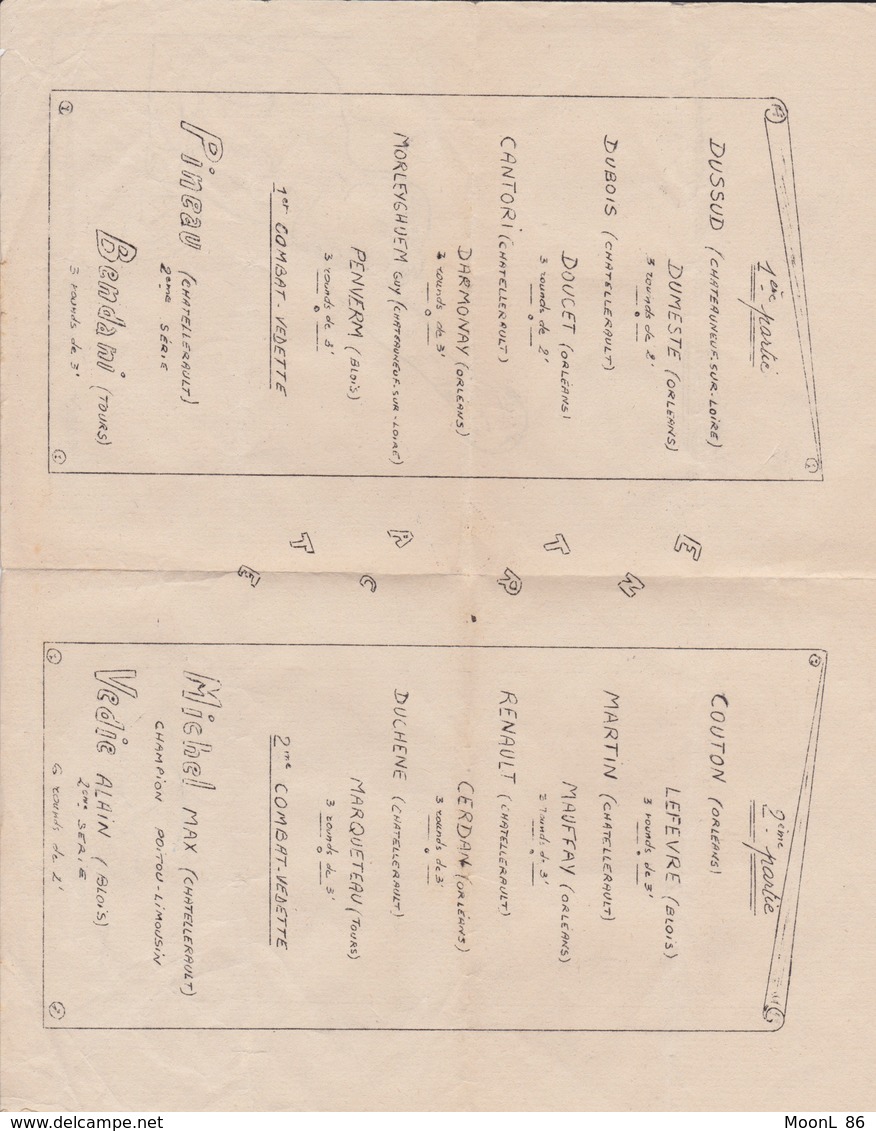 1ère partie
DUSSUD (CHATEAUNEUF-SUR-LOIRE)
DUMESTE (ORLEANS)
3 rounds de 2'
DUBOIS (CHATELLERAULT)
DOUCET (ORLÉANS)
3 rounds de 2'
CANTORI (CHATELLERAULT)
DARMONAY (ORLÉANS)
3 rounds de 3'
MORLEYGHUEM GUY (CHATEAUNEUF-SUR-LOIRE)
PENVERM (BLOIS)
3 rounds de 3'
1er COMBAT-VEDETTE
Pineau (CHATELLERAULT)
2ème SÉRIE
Bendani (TOURS)
3 rounds de 3'
ENTRACTE
2ème partie
COUTON (ORLEANS)
LEFEVRE (BLOIS)
3 rounds de 3'
MARTIN (CHATELLERAULT)
MAUFFAY (ORLÉANS)
3 rounds de 3'
RENAULT (CHATELLERAULT)
CERDAN (ORLÉANS)
3 rounds de 3'
DUCHENE (CHATELLERAULT)
MARQUETEAU (TOURS)
3 rounds de 3'
2me COMBAT-VEDETTE
Michel MAX (CHATELLERAULT)
CHAMPION POITOU-LIMOUSIN
Vedie ALAIN (BLOIS)
2ème SÉRIE
6 rounds de 2'
MoonL 86